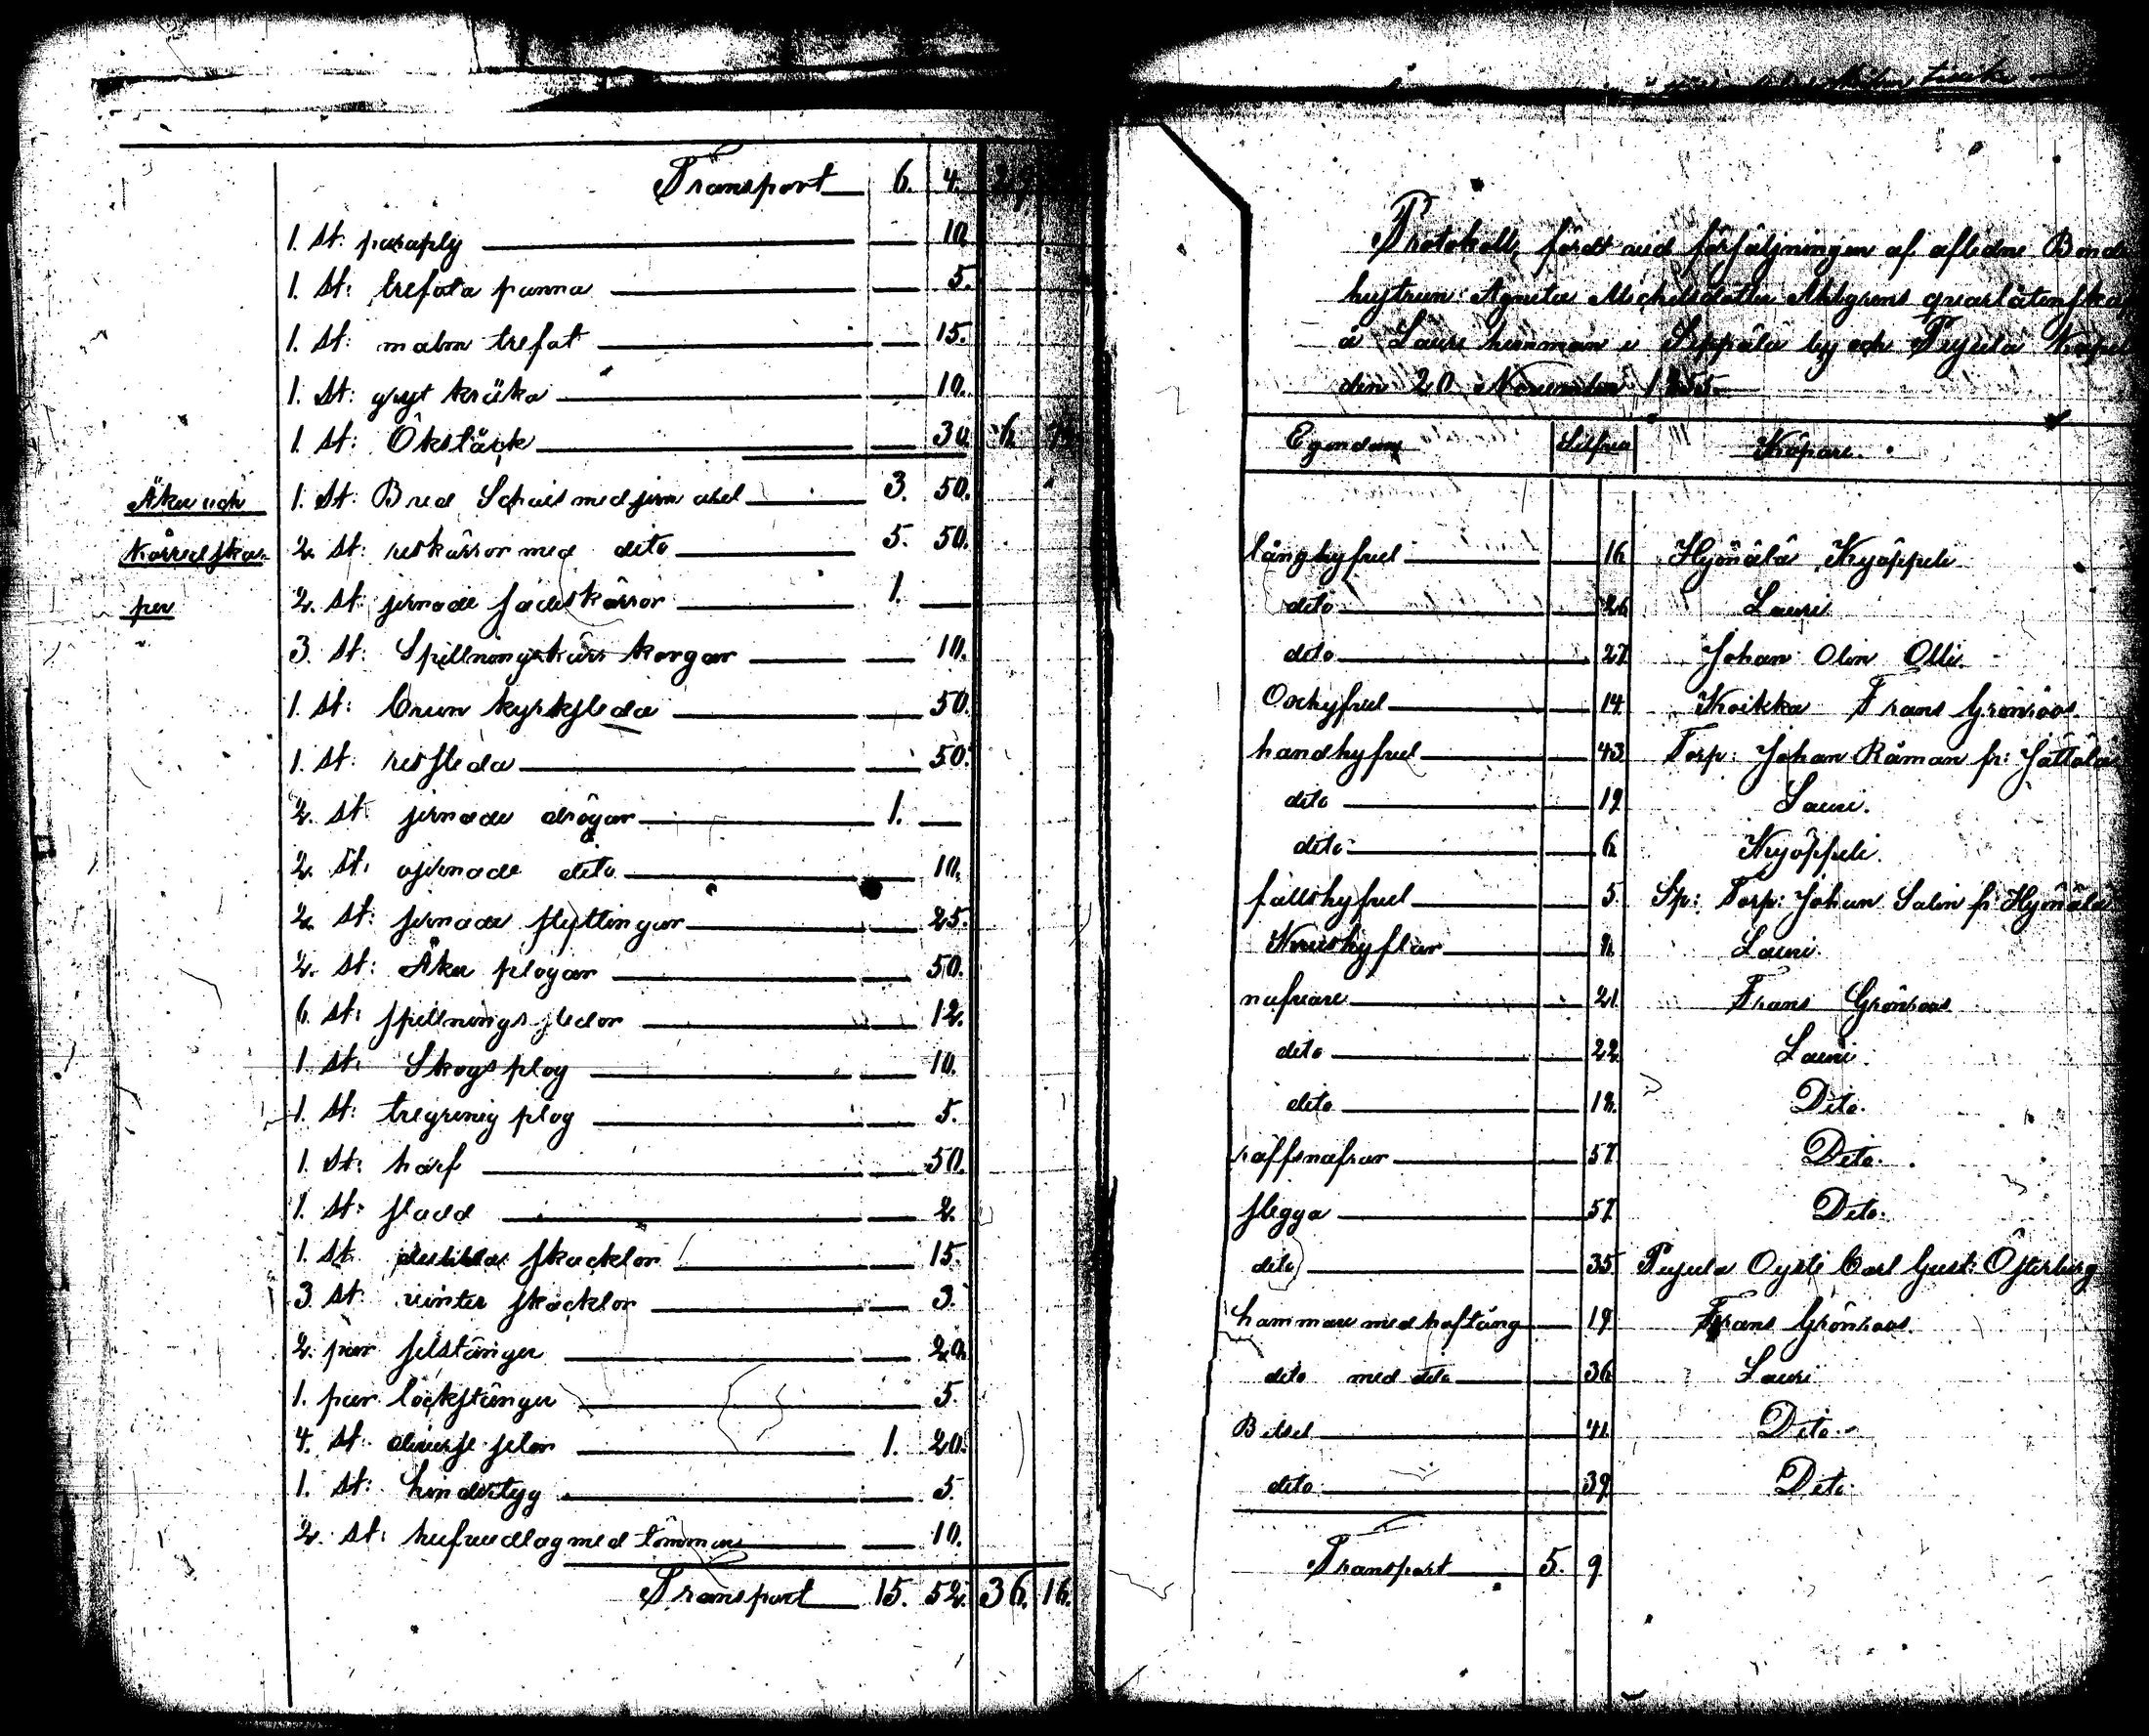 Transport 6. 4.
1. St: paraply 10.
1. St: trefota panna 5.
1. St: malm trefot 15.
1. St: gryt kräka 10.
1. St: Ökstäck 30. 6.
Åker och 1. St: Bred Schäes med jern axel 3. 50.
Körredska- 2. St: reskärror med dito 5. 50.
per 2. St: jernade jädeskärror 1.
3. St: Spillningskärr korgar 10.
1. St: Brun kyrksleda 50.
1. St: ressleda 50.
2. St: jernade drögar 1.
2. St: ojernade dito 10.
2. St: jernade slyttingar 25.
2. St: Åker plogar 50.
6. St: spillnings sledor 12.
1. St: Skogsplog 10.
1. St: tregrenig plog 5.
1. St: harf 50.
1. St: sladd 2.
1. St: skacklor 15.
3. St: vinter skacklor 3.
2. par selstänger 20.
1. par lockstänger 5.
4. St: diverse selar 1. 20.
1. St: hindertyg 5.
2. St: hufvudlag med tömmar 10.
Transport 15. 52. 36. 16.
Protokoll, fördt vid försäljningen af afledne Bonde
hustrun Agneta Michelsdotter Ahlgrens qvarlåtenskap
å Lauri hemman i Seppälä by och Pyjula Kapell
den 20 November 1855.
Egendom Silfver Köpare.
långhyfvel 16 Hyönälä Kyöppeli
dito 26 Lauri
dito 27 Johan Olin Olli.
Oxhyfvel 14 Koikka Frans Grönroos.
handhyfvel 43 Torp: Johan Råman fr: Jättälä
dito 19 Lauri.
dito 6 Kyöppeli.
falshyfvel 5 Sp: Torp: Johan Salin fr: Hyönälä
Krushyflar Lauri.
nafvare 21 Frans Grönroos.
dito 22 Lauri.
dito Dito.
raffsnafvar 57 Dito.
slegga 57 Dito.
dito 35 Pyjula Oysti Carl Gust: Österberg
hammare med hoftång 19 Frans Grönroos.
dito med dito 36 Lauri
Bitsel 41 Dito.
dito 39 Dito.
Transport 5. 9